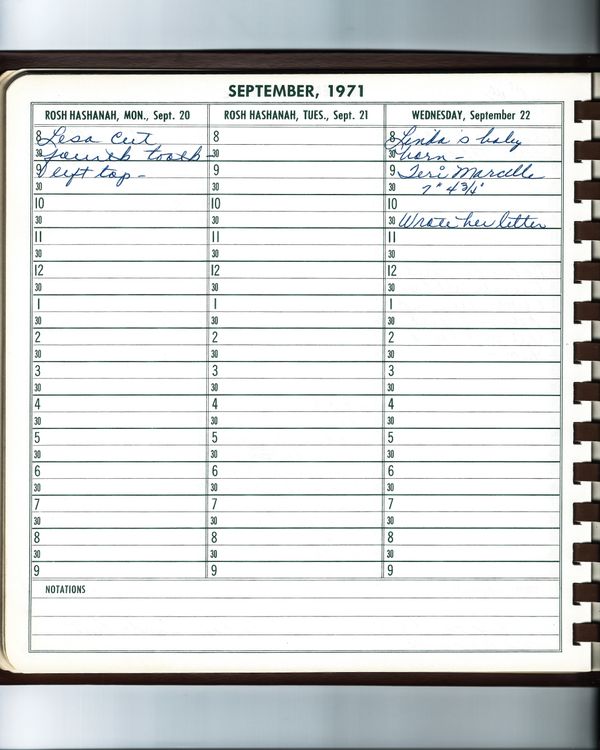 SEPTEMBER, 1971
ROSH HASHANAH, MON., Sept. 20
8 Lesa cut
30 fourth tooth -
9 left top -
30
10
30
11
30
12
30
1
30
2
30
3
30
4
30
5
30
6
30
7
30
8
30
9
ROSH HASHANAH, TUES., Sept. 21
8
30
9
30
10
30
11
30
12
30
1
30
2
30
3
30
4
30
5
30
6
30
7
30
8
30
9
WEDNESDAY, September 22
8 Linda's baby
30 born -
9 Teri Marcelle
30 7# 4 3/4"
10
30 Wrote her letter
11
30
12
30
1
30
2
30
3
30
4
30
5
30
6
30
7
30
8
30
9
NOTATIONS